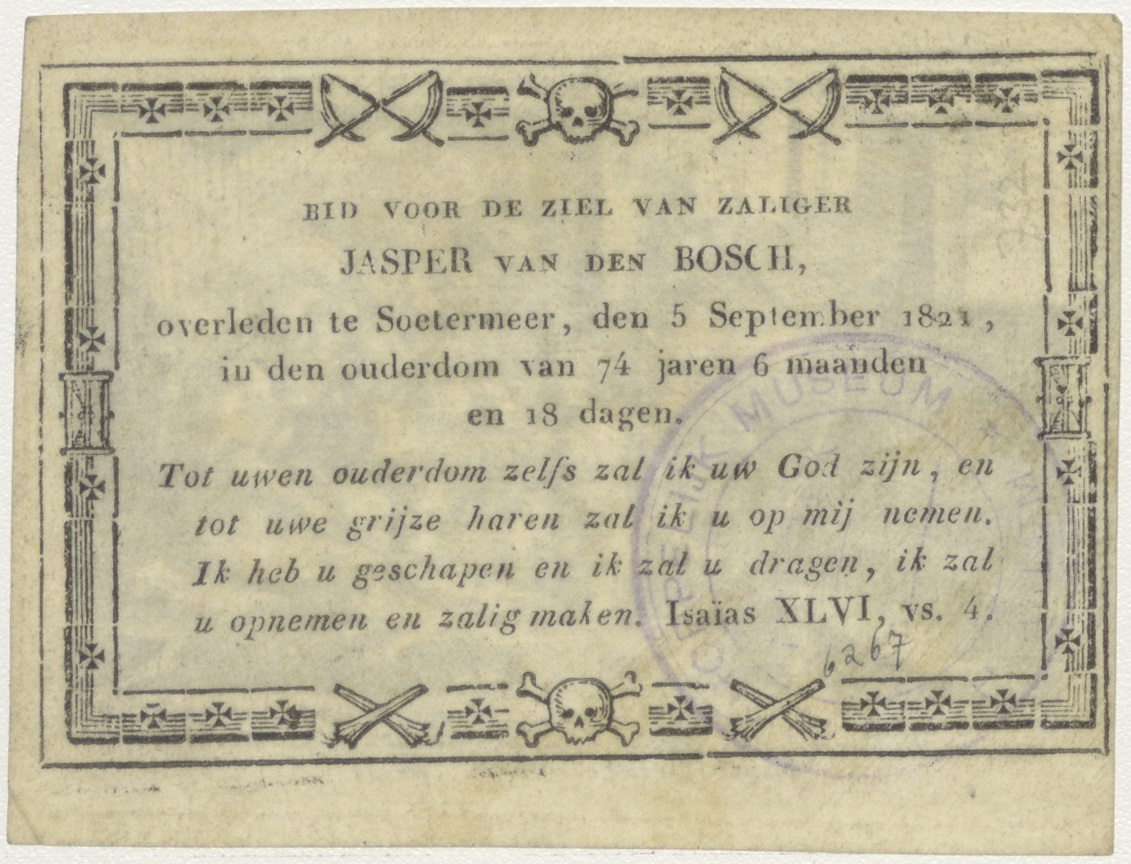 BID VOOR DE ZIEL VAN ZALIGER
JASPER VAN DEN BOSCH,
overleden te Soetermeer, den 5 September 1821,
in den ouderdom van 74 jaren 6 maanden
en 18 dagen.
Tot uwen ouderdom zelfs zal ik uw God zijn, en
tot uwe grijze haren zal ik u op mij nemen.
Ik heb u geschapen en ik zal u dragen, ik zal
u opnemen en zalig maken. Isaïas XLVI, vs. 4.
6267
732
MUSEUM *